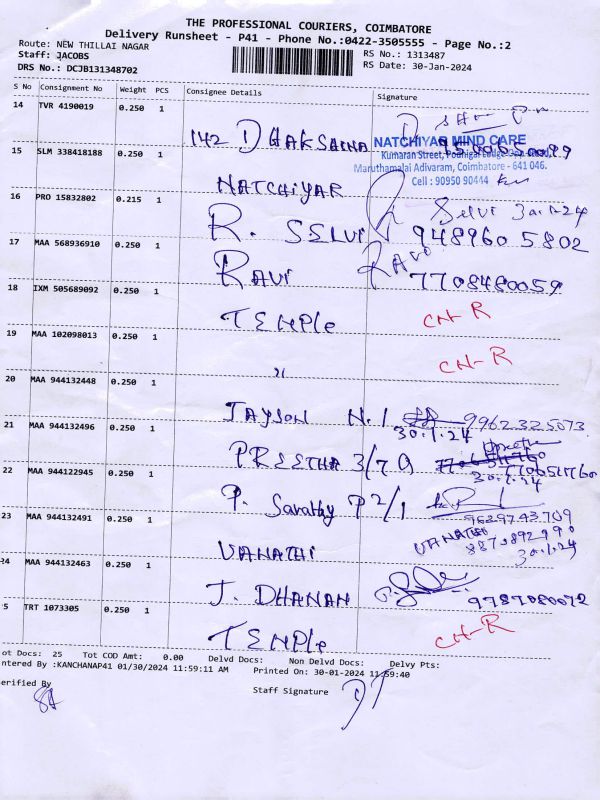 THE PROFESSIONAL COURIERS, COIMBATORE
Delivery Runsheet - P41 - Phone No.:0422-3505555 - Page No.:2
Route: NEW THILLAI NAGAR
RS No.: 1313487
Staff: JACOBS
RS Date: 30-Jan-2024
DRS No.: DCJB131348702
S No Consignment No Weight PCS Consignee Details Signature
14 TVR 4190019 0.250 1
142 DHAKSHINA
NATCHIYAR MIND CARE
Kumaran Street,
Maruthamalai Adivaram, Coimbatore - 641 046.
Cell : 90950 90444
15 SLM 338418188 0.250 1
NATCHIYAR
16 PRO 15832802 0.215 1
Selvi 30.1.24
R. SELVI 948960 5802
17 MAA 568936910 0.250 1
RAVI Ravi 7708480059
18 IXM 505689092 0.250 1
TEMPle CN-R
19 MAA 102098013 0.250 1
" CN-R
20 MAA 944132448 0.250 1
JAYSON N.1 9962325073
30.1.24
21 MAA 944132496 0.250 1
PREETHA 3/7 Q
30.1.24
22 MAA 944122945 0.250 1
P. Sarathy P2/1
9629743709
23 MAA 944132491 0.250 1
VANATHI VANATHI
8870892990
30.1.24
24 MAA 944132463 0.250 1
J. DHANAN 9787080072
5 TRT 1073305 0.250 1
TEMPle CN-R
ot Docs: 25 Tot COD Amt: 0.00 Delvd Docs: Non Delvd Docs: Delvy Pts:
ntered By :KANCHANAP41 01/30/2024 11:59:11 AM Printed On: 30-01-2024 11:59:40
erified By
Staff Signature